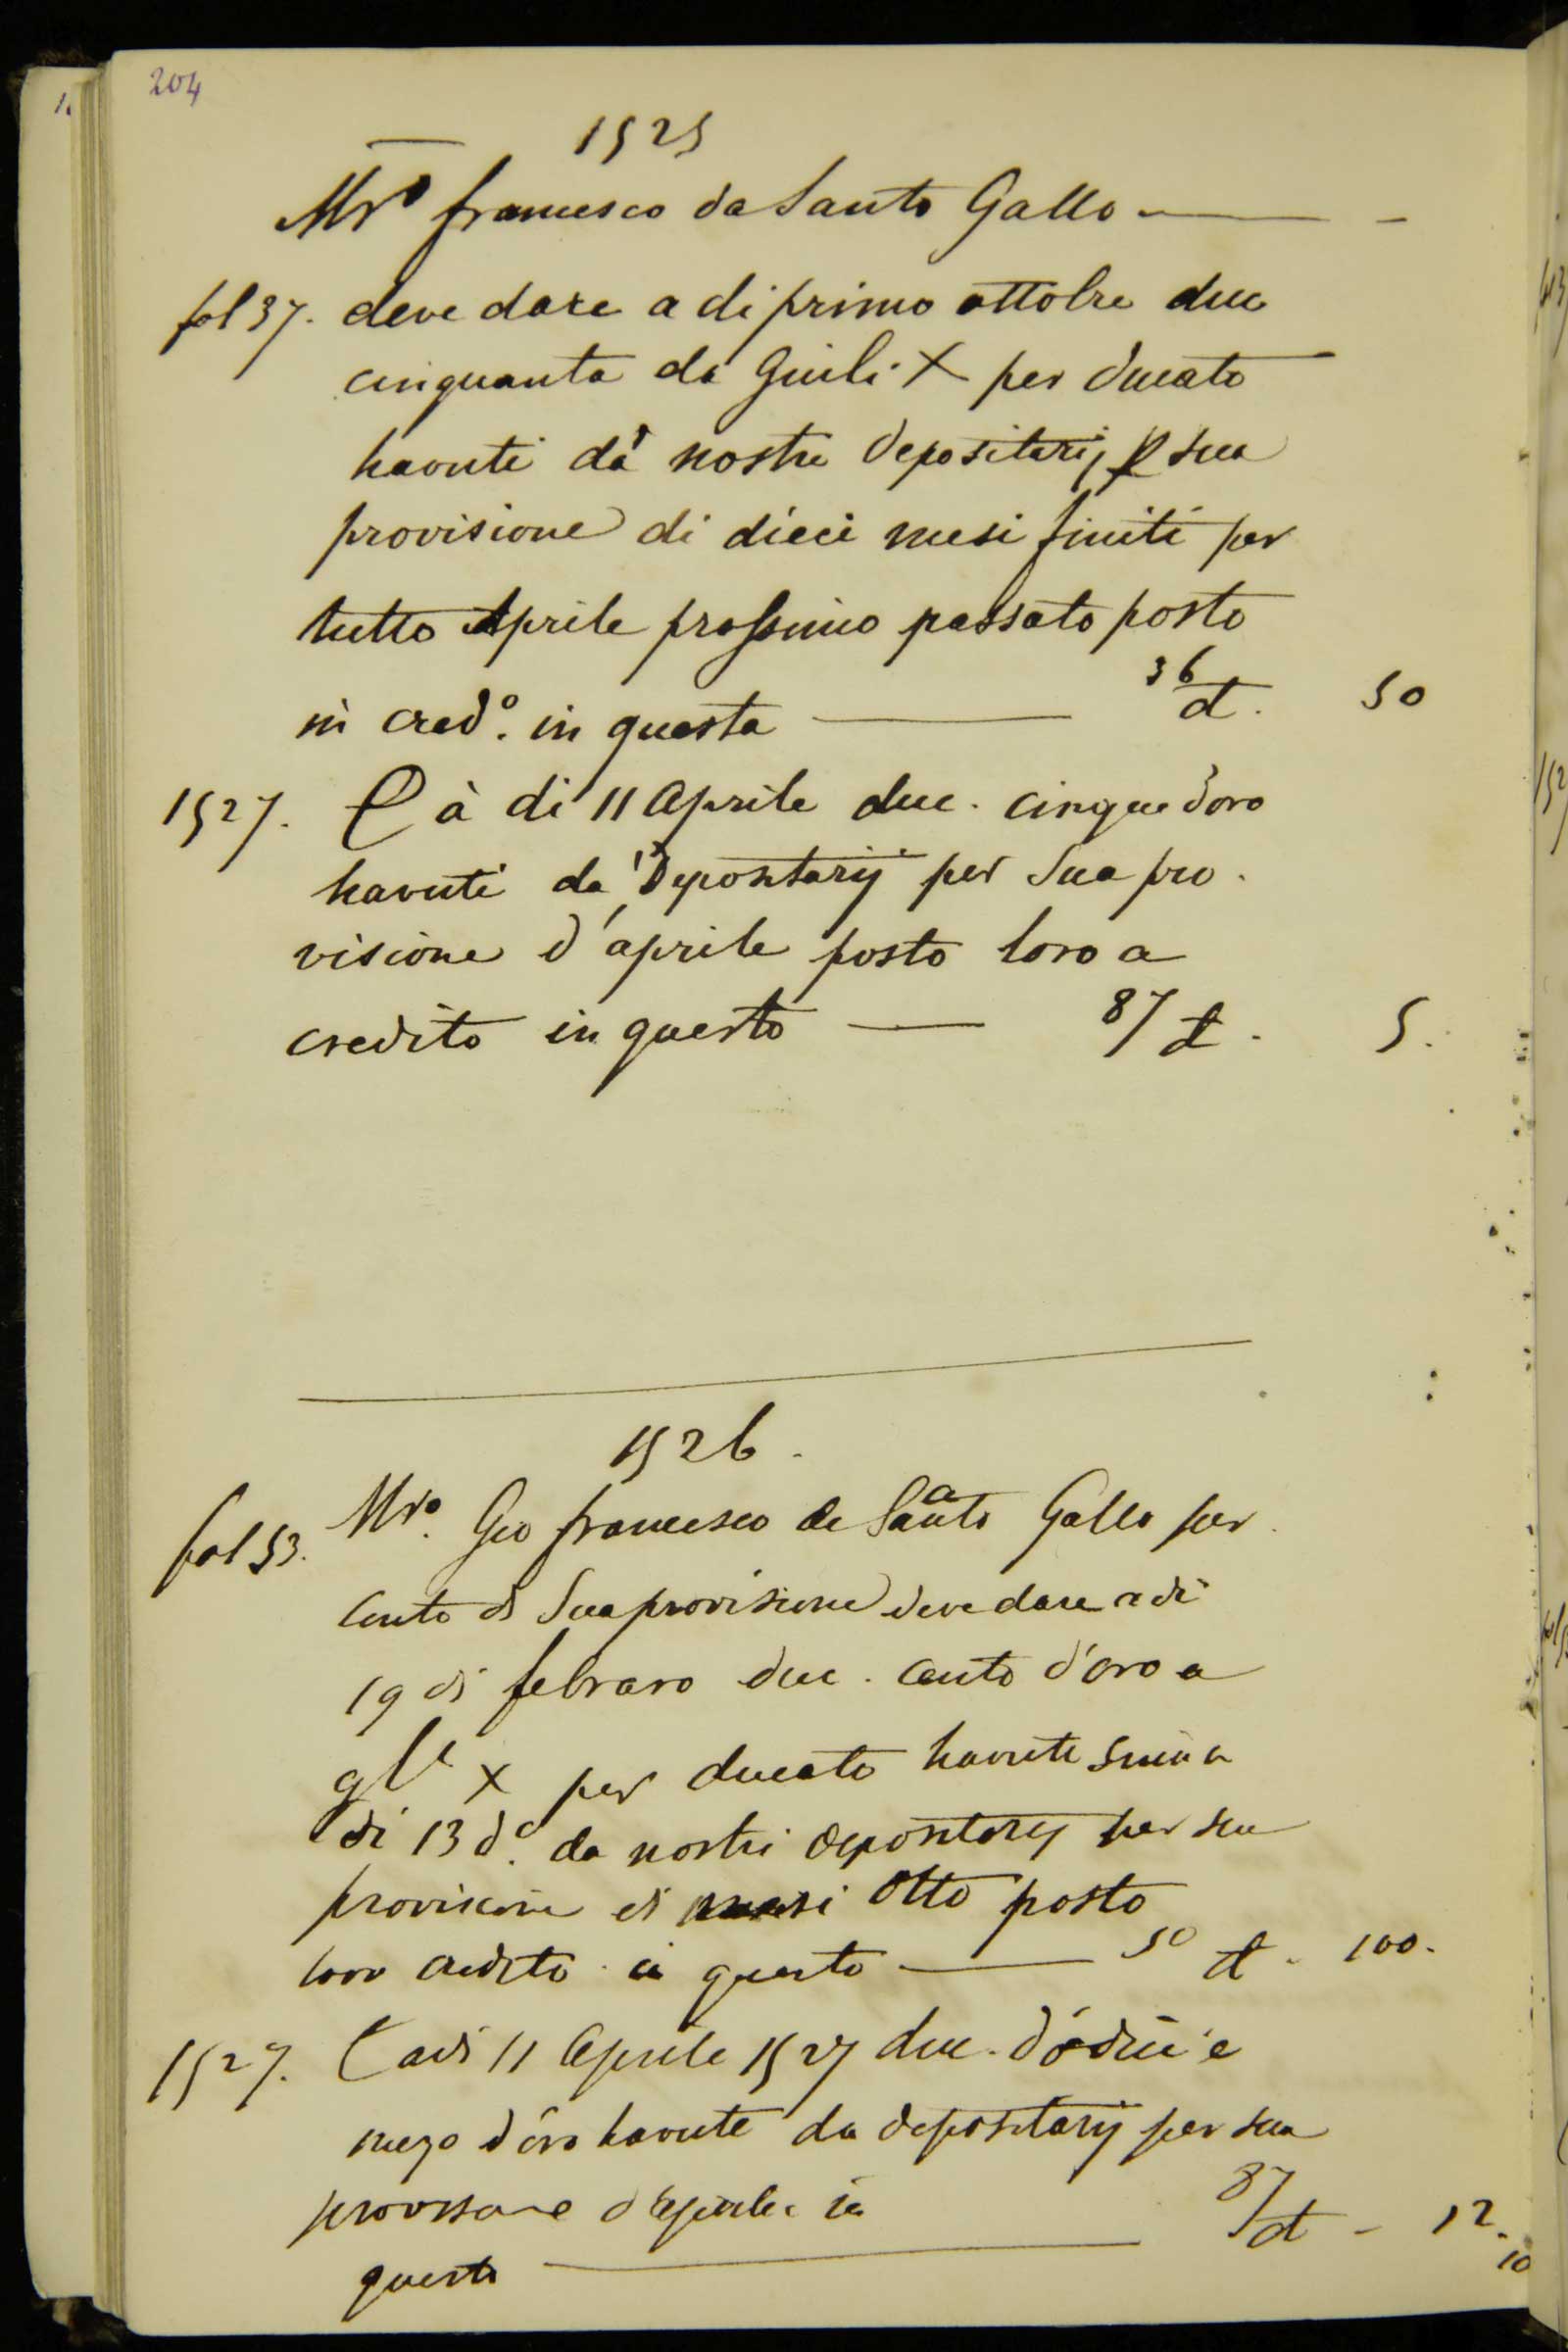 204
1525
Mro francesco da Santo Gallo
fol 37. deve dare a di primo ottobre duc
cinquanta da Giuli X per ducato
havuti da nostri depositarij p sua
provisione di dieci mesi finiti per
tutto Aprile prossimo passato posto
in credo. in questo 36 d. 50
1527. E à di 11 Aprile duc. cinque d'oro
havuti da Depositarij per sua pro.
visione d'aprile posto loro a
credito in questo 87 d. 5.
1526.
fol 53. Mro. Gio francesco da Santo Gallo per
conto di Sua provisione deve dare a di
19 di febraro duc. cento d'oro a
gli X per ducato havuti sino a
di 13 do. da nostri depositarij per sua
provisione di mesi otto posto
loro credito in questo 50 d. 100.
1527. E adi 11 Aprile 1527 duc. dodici e
mezo d'oro havute da depositarij per sua
provisione d'Aprile in
questo 87 d - 12.10